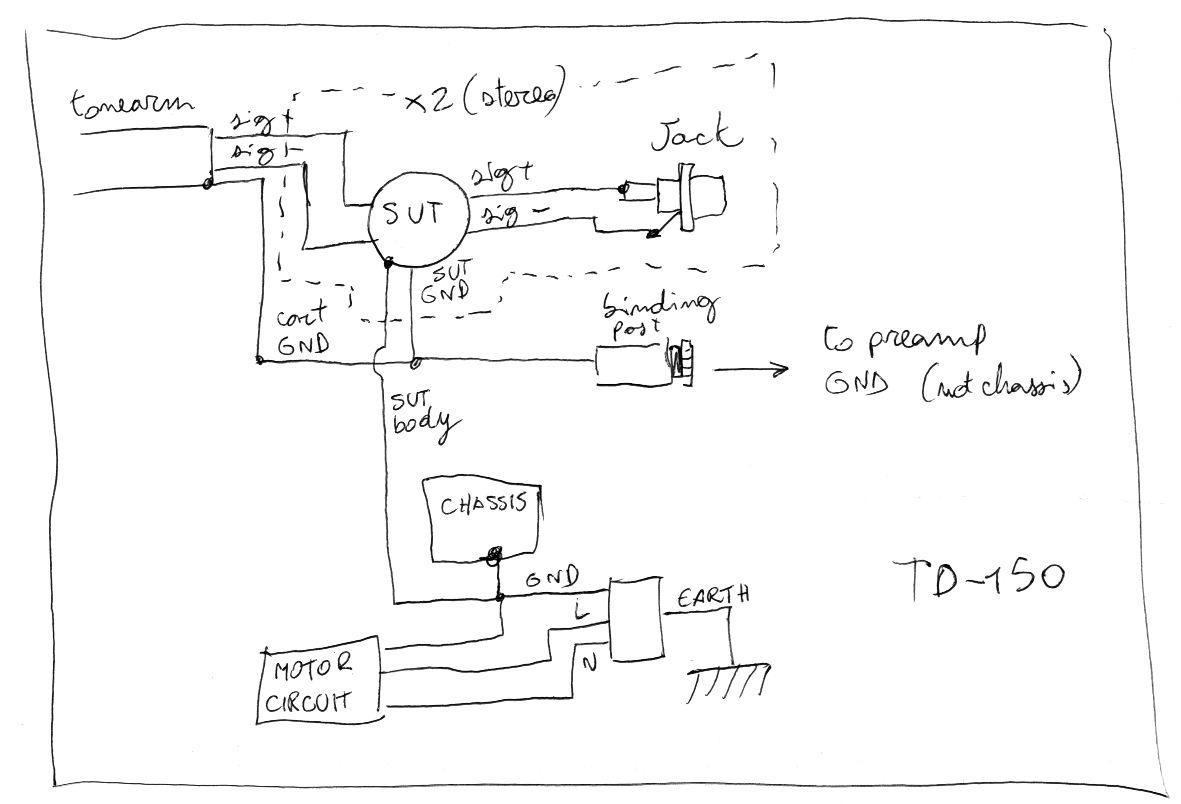 tonearm
x2 (stereo)
sig+
sig-
Jack
SUT
sig+
sig -
SUT
GND
cart
GND
binding
post
to preamp
GND (not chassis)
SUT
body
CHASSIS
GND
L
N
EARTH
TD-150
MOTOR
CIRCUIT